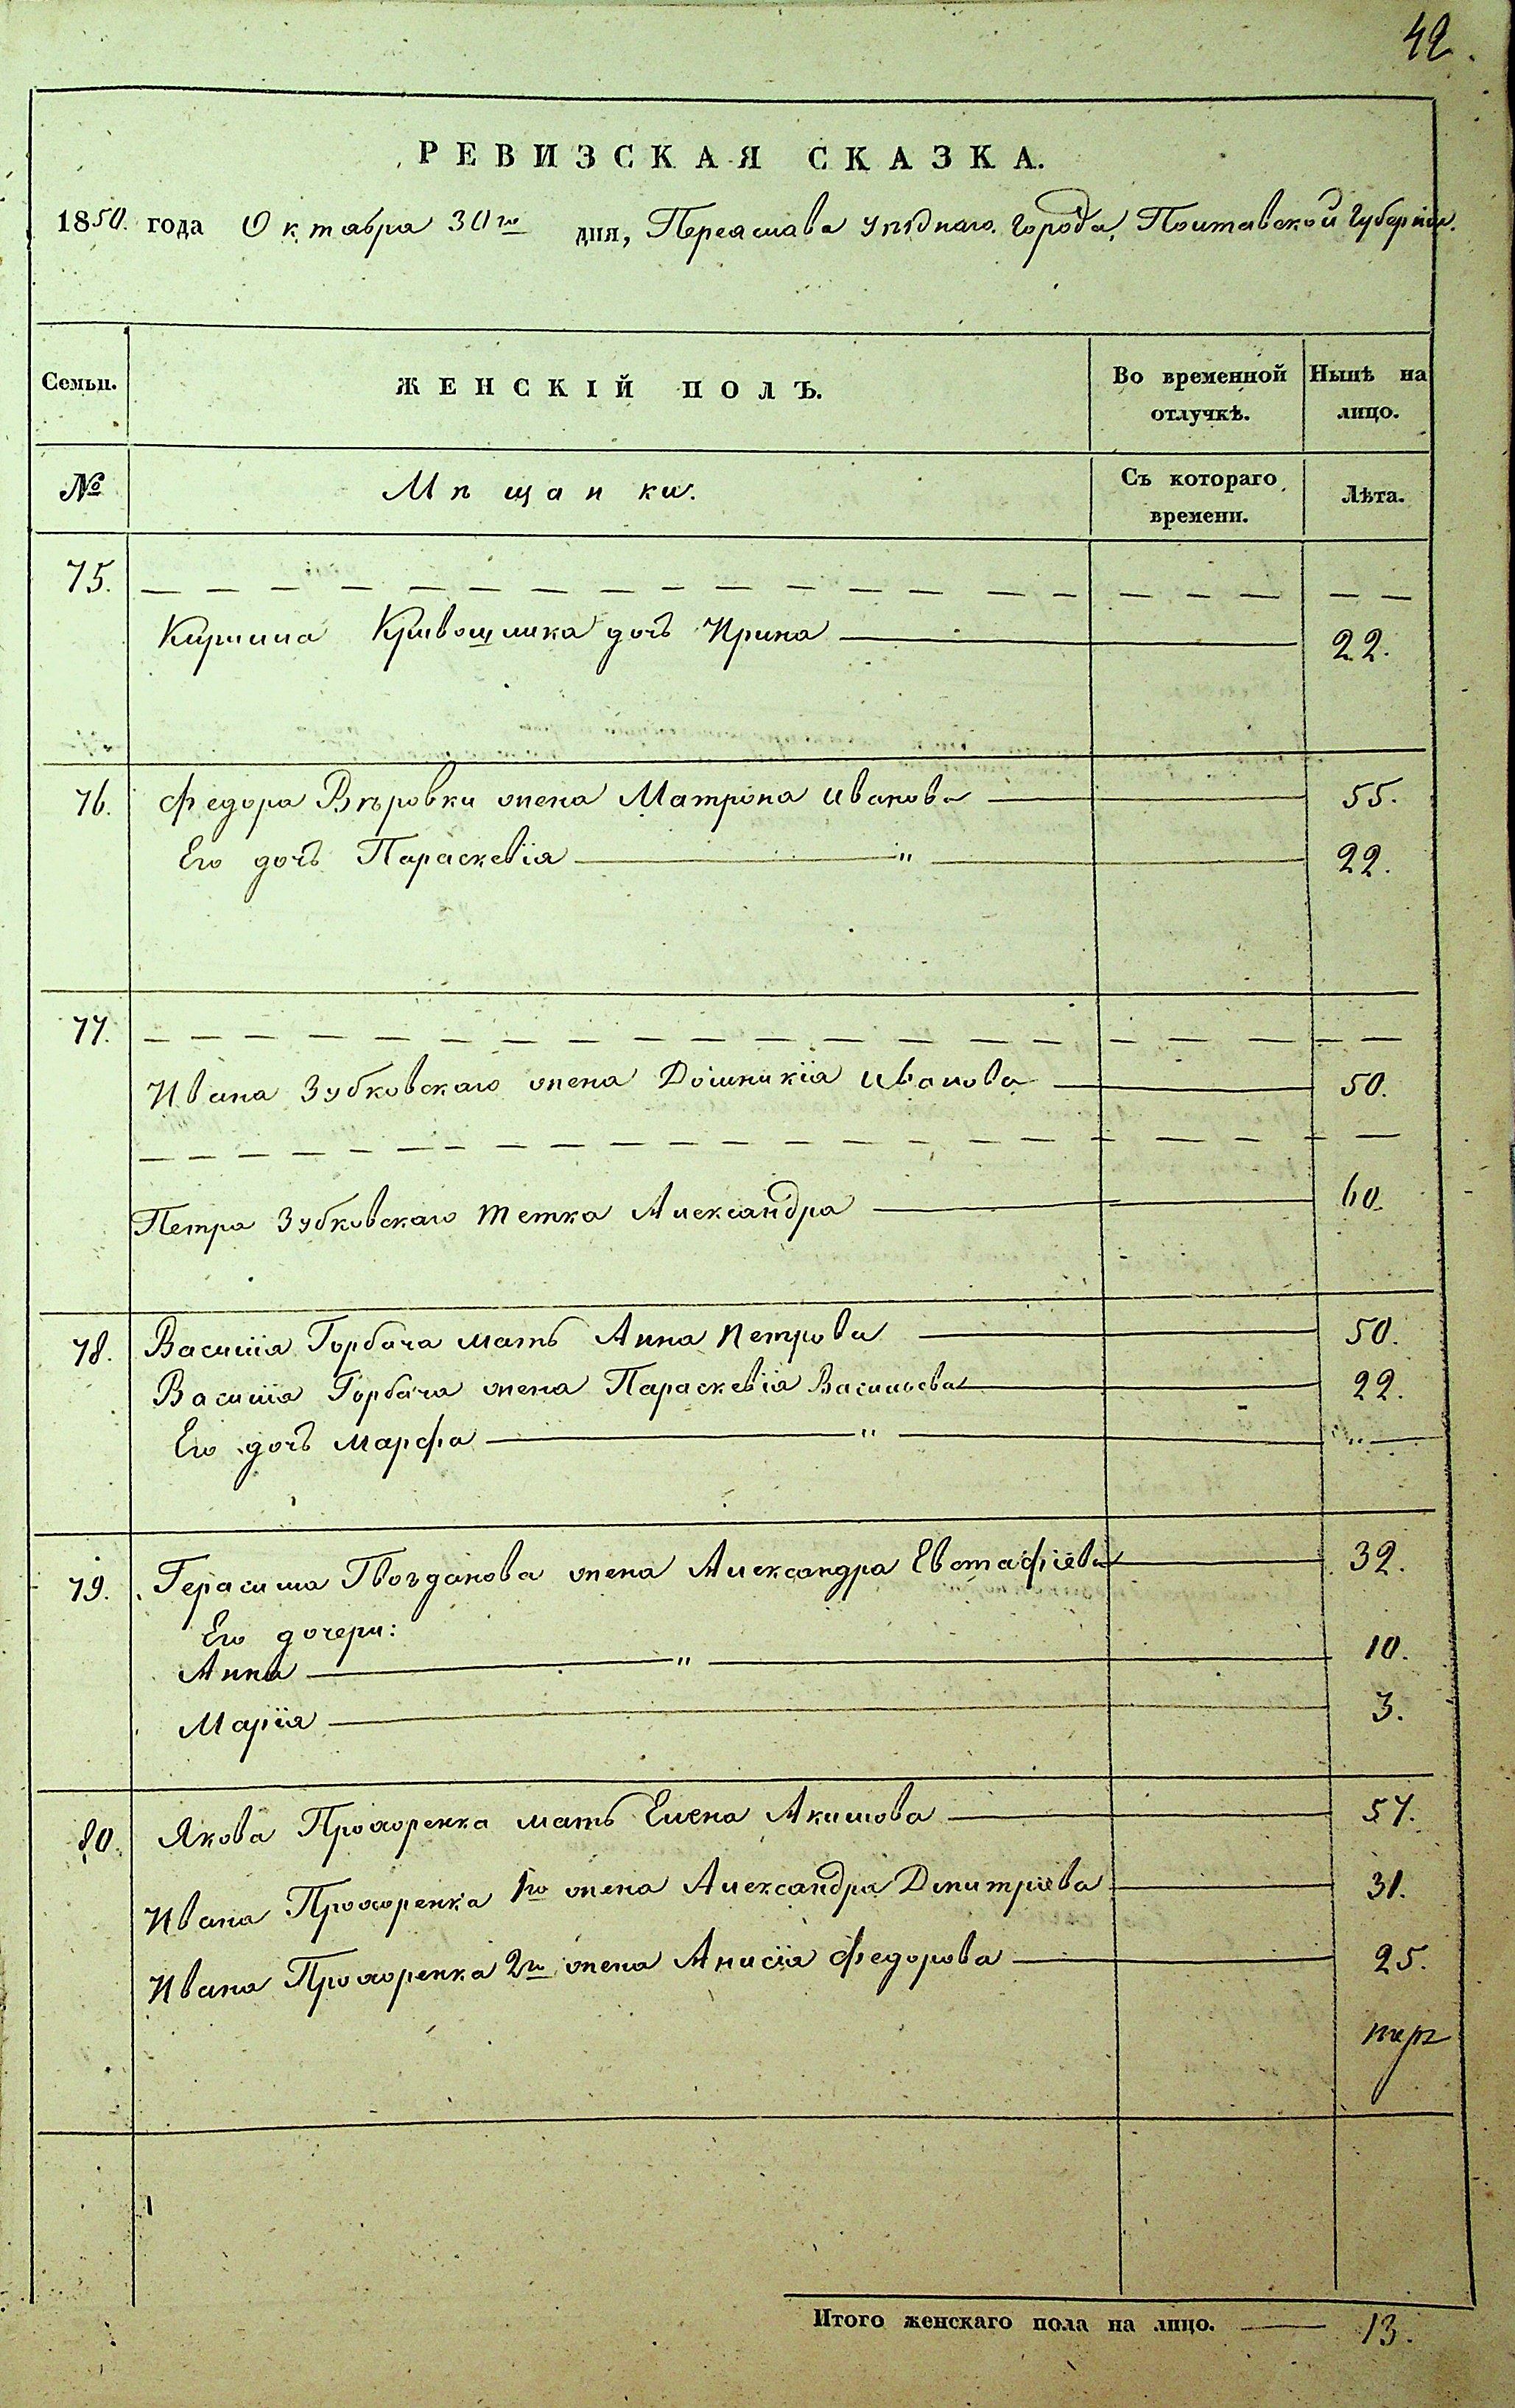 42.
РЕВИЗСКАЯ СКАЗКА.
1850. года Октабра 30го дня, Переаслава уѣзднаго города, Полтавской Губерніи.
Семьи. ЖЕНСКІЙ ПОЛЪ. Во временной отлучкѣ. Нынѣ на лицо.
№ Мѣщанки. Съ котораго времени. Лѣта.
75. — — — — — —
Кирила дочь Ирина — 22.
76. Федора Вѣровки жена Матрона Иванова — 55.
Его дочь Параскевія — " — 22.
77. — — — — — —
Ивана Зубковскаго жена Домникія Иванова — 50.
— — — — — —
Петра Зубковскаго тетка Александра — 60.
78. Василія Горбача мать Анна Петрова — 50.
Василія Горбача жена Параскевія Васильева — 22.
Его дочь Марфа — " — " —
79. Герасима Гвозданова жена Александра Евстафіева — 32.
Его дочери:
Анна — " — 10.
Марія — 3.
80. Якова Прохоренка мать Елена Акимова — 57.
Ивана Прохоренка 1го жена Александра Дмитріева — 31.
Ивана Прохоренка 2го жена Анисія Федорова — 25.
Итого женскаго пола на лицо. — 13.